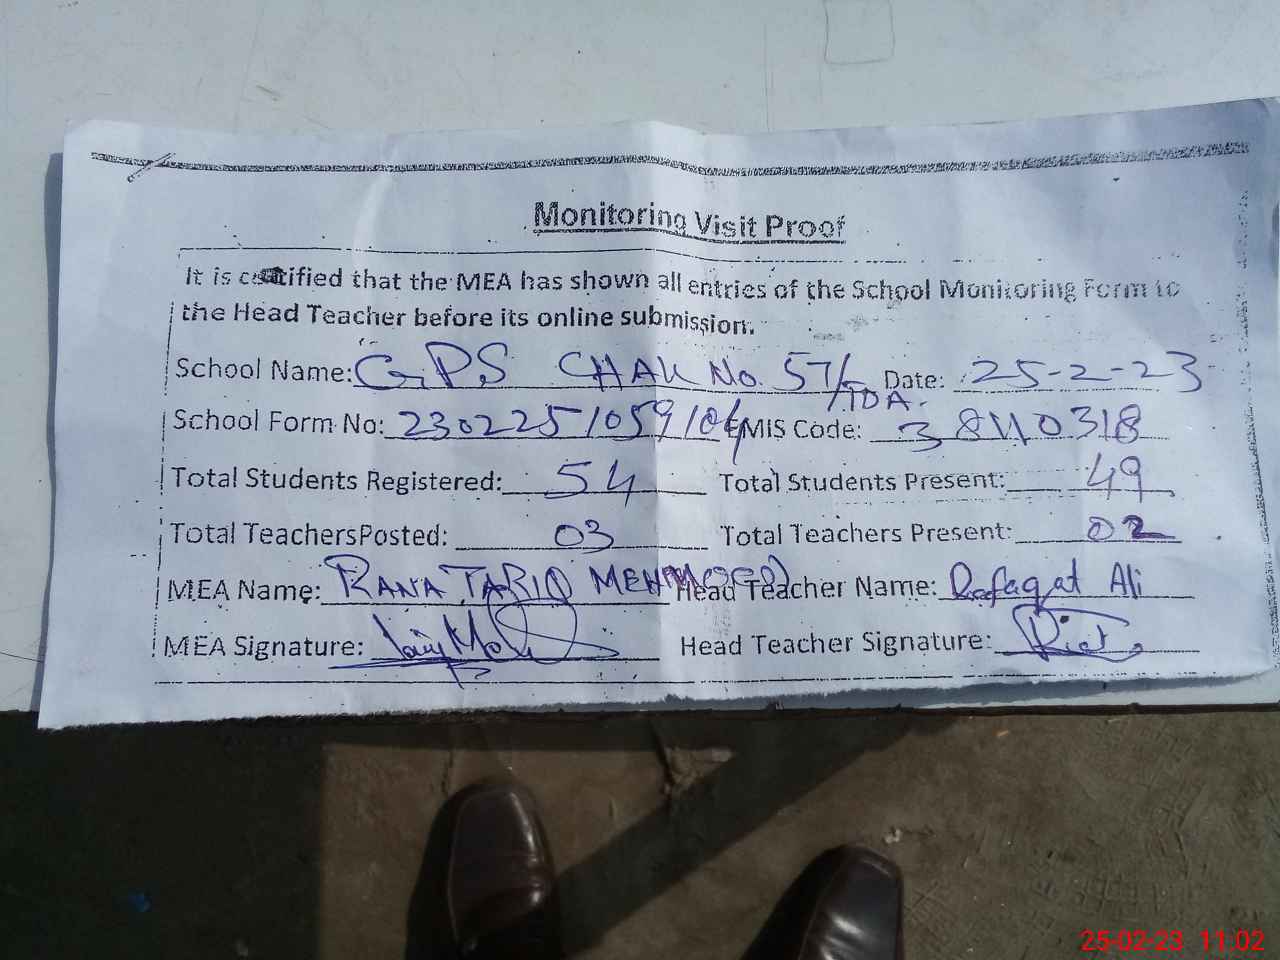 Monitoring Visit Proof
It is certified that the MEA has shown all entries of the School Monitoring Form to
the Head Teacher before its online submission.
School Name: GPS CHAK No. 57/TDA. Date: 25-2-23
School Form No: 2302251059104 EMIS Code: 38110318
Total Students Registered: 54 Total Students Present: 49
Total TeachersPosted: 03 Total Teachers Present: 02
MEA Name: RANA TARIQ MEHMOOD Head Teacher Name: Rafaqat Ali
MEA Signature: Head Teacher Signature:
25-02-23 11:02